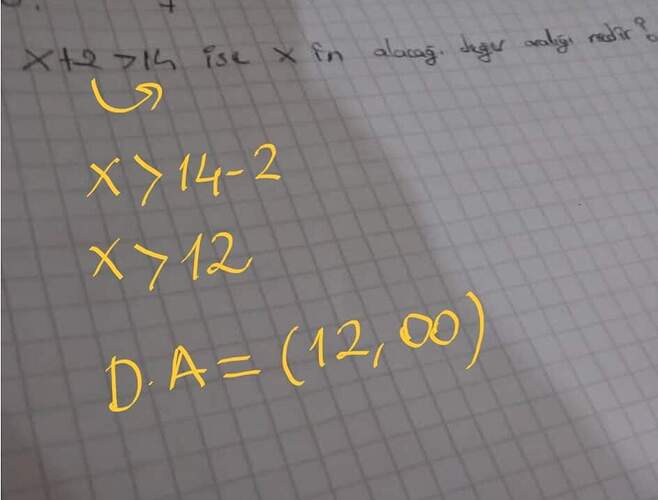 x+2 > 14 ise x in alacağı değer aralığı nedir?
x > 14-2
x > 12
D.A = (12, ∞)